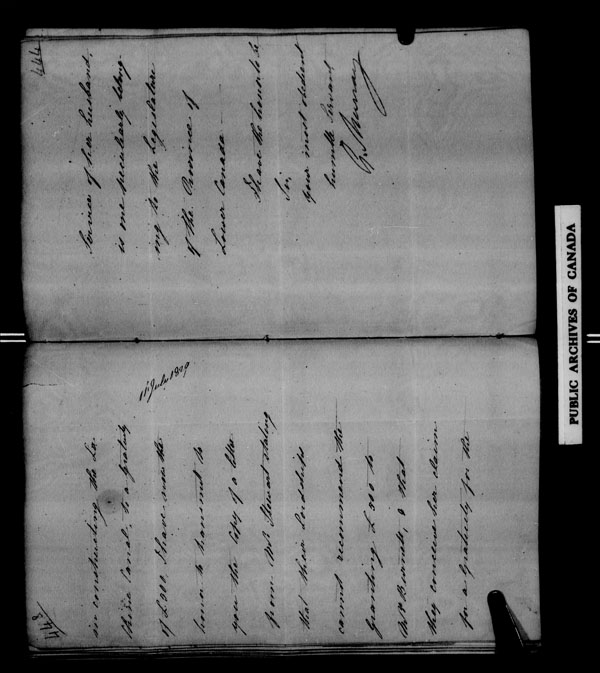 448
11 July 1829
in constructing the La-
chine Canal, to a gratuity
of £200, I have now the
honor to transmit to
you the Copy of a letter
from Mr Stewart stating
that their Lordships
cannot recommend the
granting £200 to
Mrs & that
they conceive her claim
for a gratuity for the
444
Services of her husband,
is one peculiarly belong-
ing to the Legislature
of the Province of
Lower Canada
I have the honor to be
Sir,
your most obedient
humble Servant
G. Murray
PUBLIC ARCHIVES OF CANADA